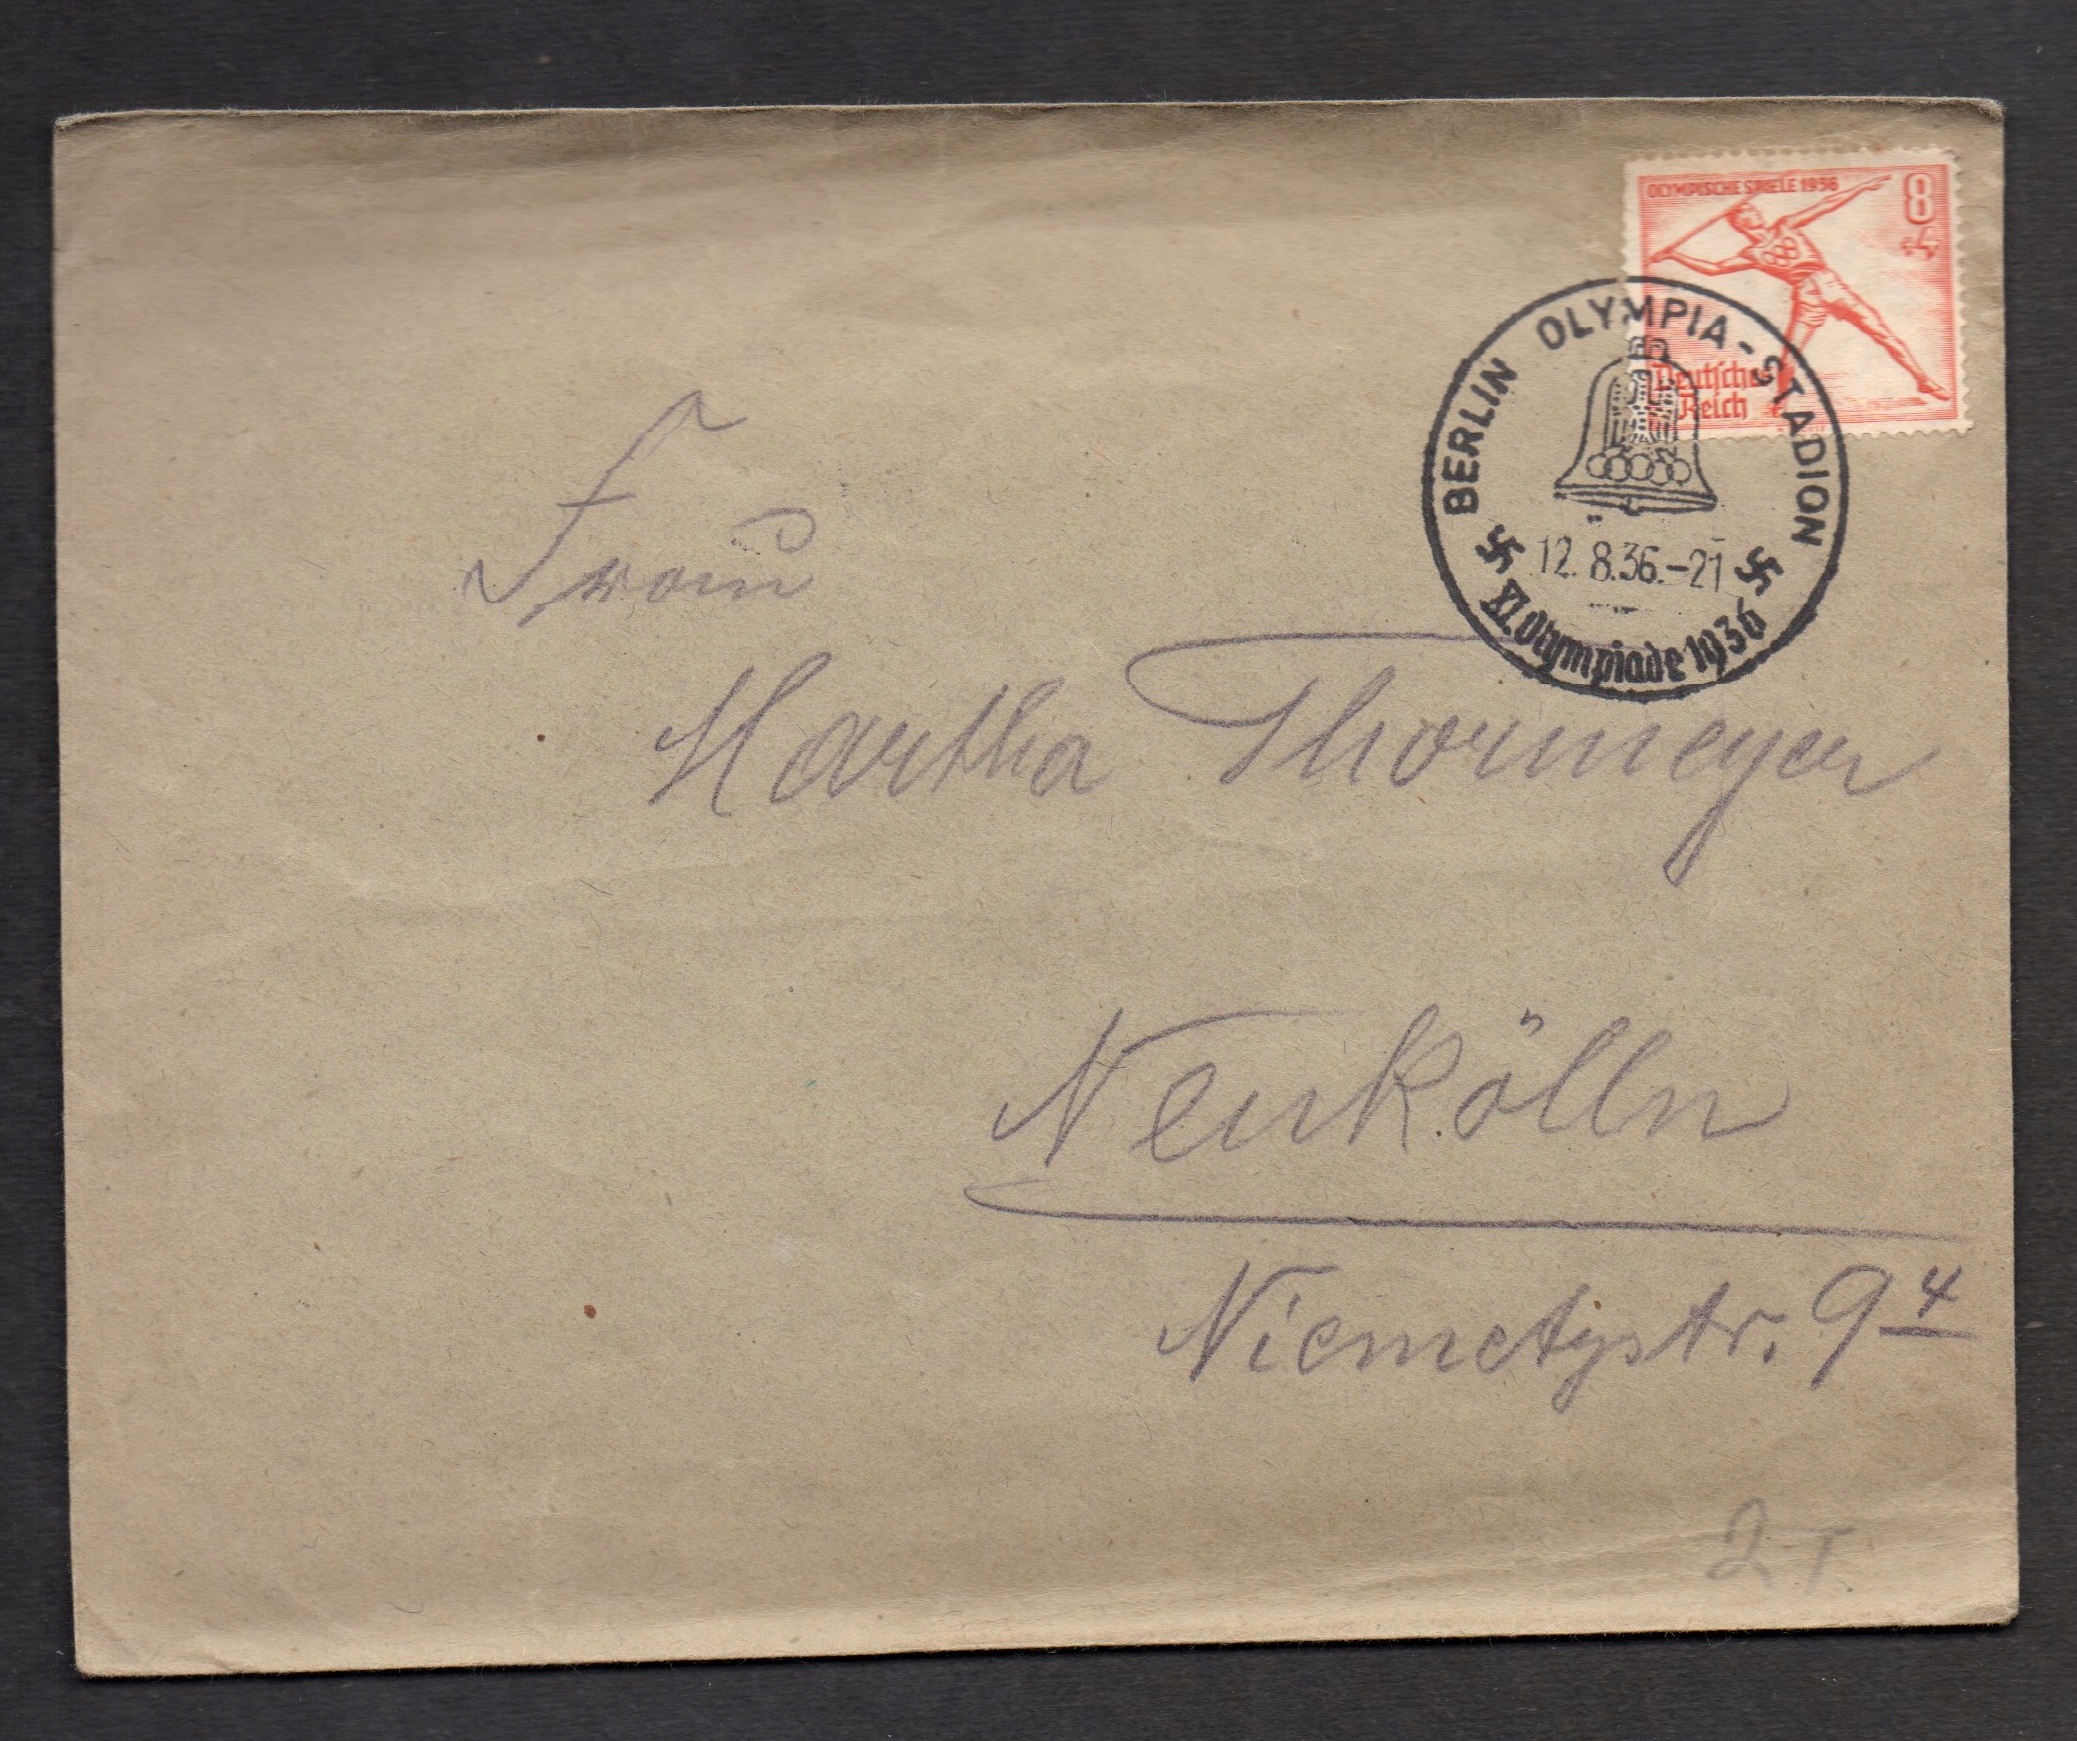 OLYMPISCHE SPIELE 1936
8
+4
Deutsches
Reich
BERLIN OLYMPIA-STADION
12.8.36.-21
XI. Olympiade 1936
Frau
Martha Thormeyer
Neukölln
Niemetzstr. 9 4